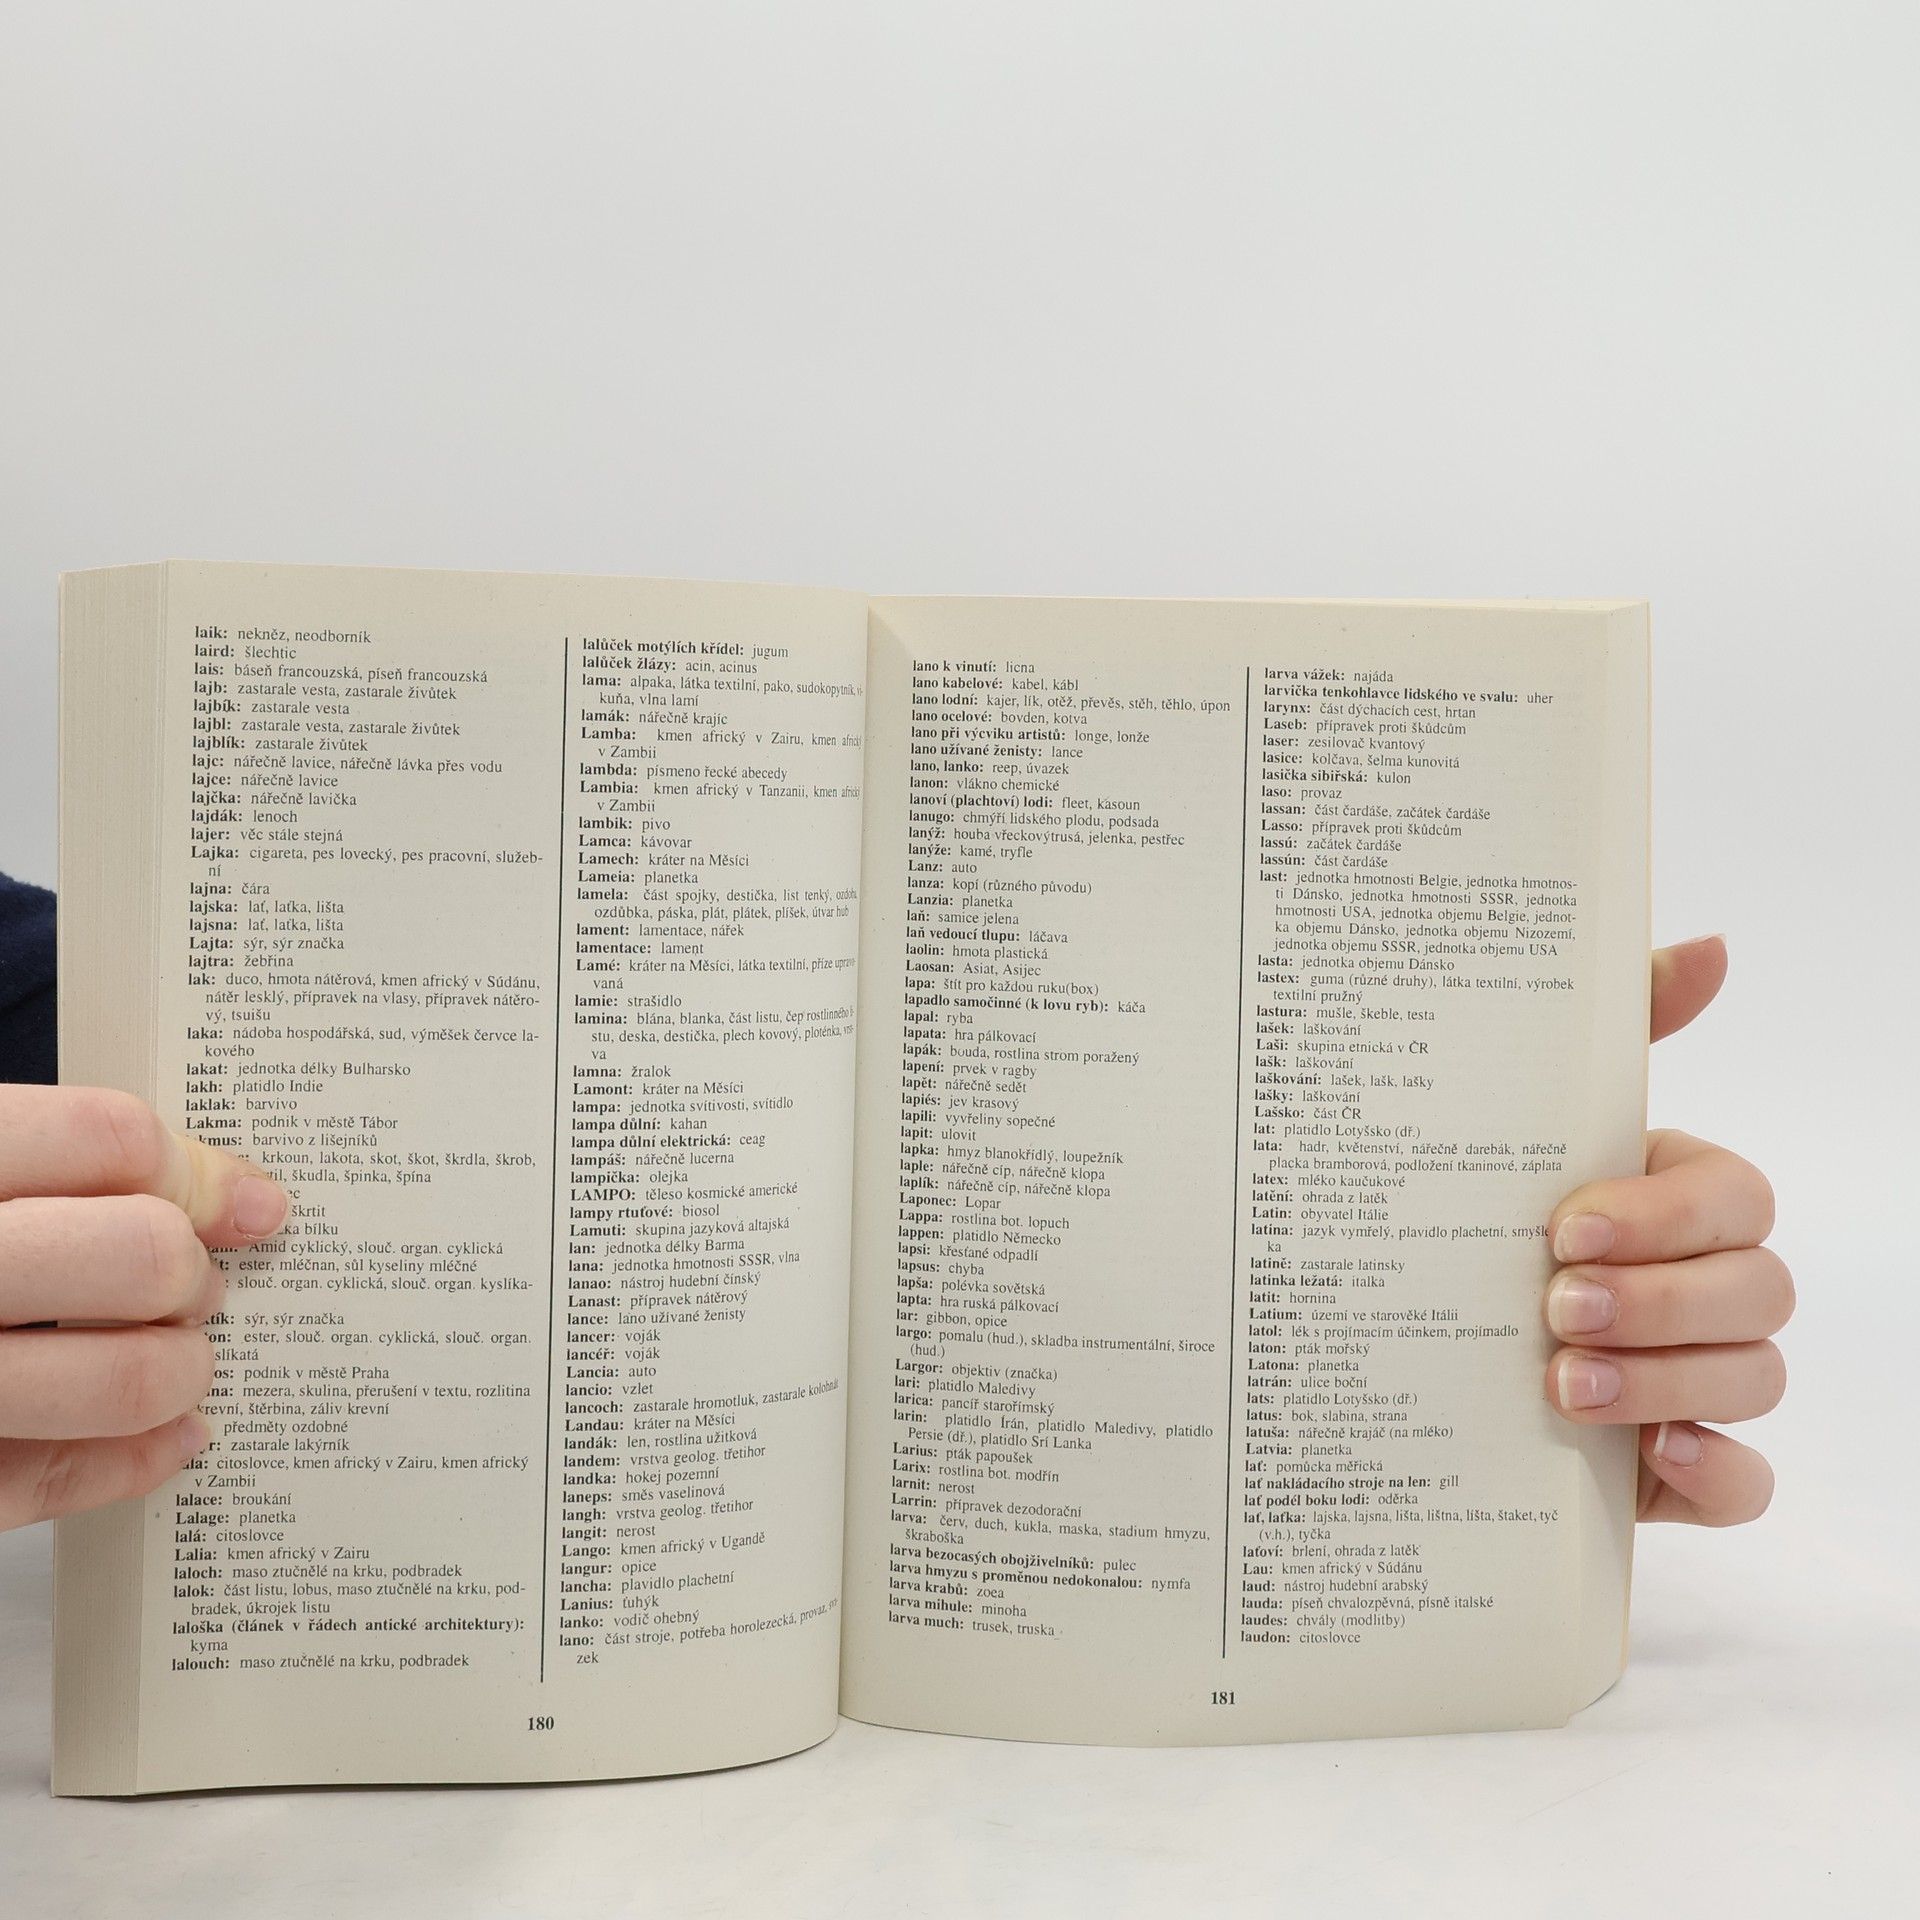 laik: nekněz, neodborník
laird: šlechtic
lais: báseň francouzská, píseň francouzská
lajb: zastarale vesta, zastarale živůtek
lajbík: zastarale vesta
lajbl: zastarale vesta, zastarale živůtek
lajblík: zastarale živůtek
lajc: nářečně lavice, nářečně lávka přes vodu
lajce: nářečně lavice
lajčka: nářečně lavička
lajdák: lenoch
lajer: věc stále stejná
Lajka: cigareta, pes lovecký, pes pracovní, služeb-
ní
lajna: čára
lajska: lať, laťka, lišta
lajsna: lať, laťka, lišta
Lajta: sýr, sýr značka
lajtra: žebřina
lak: duco, hmota nátěrová, kmen africký v Súdánu,
nátěr lesklý, přípravek na vlasy, přípravek nátěro-
vý, tsuišu
laka: nádoba hospodářská, sud, výměšek červce la-
kového
lakat: jednotka délky Bulharsko
lakh: platidlo Indie
laklak: barvivo
Lakma: podnik v městě Tábor
kmus: barvivo z lišejníků
krkoun, lakota, skot, škot, škrdla, škrob,
til, škudla, špinka, špína
ec
škrtit
ka bílku
Amid cyklický, slouč. organ. cyklická
t: ester, mléčnan, sůl kyseliny mléčné
: slouč. organ. cyklická, slouč. organ. kyslíka-
ktík: sýr, sýr značka
ton: ester, slouč. organ. cyklická, slouč. organ.
slíkatá
os: podnik v městě Praha
na: mezera, skulina, přerušení v textu, rozlitina
krevní, štěrbina, záliv krevní
předměty ozdobné
ýr: zastarale lakýrník
ala: citoslovce, kmen africký v Zairu, kmen africký
v Zambii
lalace: broukání
Lalage: planetka
lalá: citoslovce
Lalia: kmen africký v Zairu
laloch: maso ztučnělé na krku, podbradek
lalok: část listu, lobus, maso ztučnělé na krku, pod-
bradek, úkrojek listu
laloška (článek v řádech antické architektury):
kyma
lalouch: maso ztučnělé na krku, podbradek
180
lalůček motýlích křídel: jugum
lalůček žlázy: acin, acinus
lama: alpaka, látka textilní, pako, sudokopytník, vi-
kuňa, vlna lamí
lamák: nářečně krajíc
Lamba: kmen africký v Zairu, kmen africký
v Zambii
lambda: písmeno řecké abecedy
Lambia: kmen africký v Tanzanii, kmen africký
v Zambii
lambik: pivo
Lamca: kávovar
Lamech: kráter na Měsíci
Lameia: planetka
lamela: část spojky, destička, list tenký, ozdoba,
ozdůbka, páska, plát, plátek, plíšek, útvar hub
lament: lamentace, nářek
lamentace: lament
Lamé: kráter na Měsíci, látka textilní, příze uprave-
vaná
lamie: strašidlo
lamina: blána, blanka, část listu, čep rostlinného li-
stu, deska, destička, plech kovový, ploténka, vrst-
va
lamna: žralok
Lamont: kráter na Měsíci
lampa: jednotka svítivosti, svítidlo
lampa důlní: kahan
lampa důlní elektrická: ceag
lampáš: nářečně lucerna
lampička: olejka
LAMPO: těleso kosmické americké
lampy rtuťové: biosol
Lamuti: skupina jazyková altajská
lan: jednotka délky Barma
lana: jednotka hmotnosti SSSR, vlna
lanao: nástroj hudební čínský
Lanast: přípravek nátěrový
lance: lano užívané ženisty
lancer: voják
lancéř: voják
Lancia: auto
lancio: vzlet
lancoch: zastarale hromotluk, zastarale kolohnát
Landau: kráter na Měsíci
landák: len, rostlina užitková
landem: vrstva geolog. třetihor
landka: hokej pozemní
laneps: směs vaselinová
langh: vrstva geolog. třetihor
langit: nerost
Lango: kmen africký v Ugandě
langur: opice
lancha: plavidlo plachetní
Lanius: ťuhýk
lanko: vodič ohebný
lano: část stroje, potřeba horolezecká, provaz, svá-
zek
lano k vinutí: licna
lano kabelové: kabel, kábl
lano lodní: kajer, lík, otěž, převěs, stěh, těhlo, úpon
lano ocelové: bovden, kotva
lano při výcviku artistů: longe, lonže
lano užívané ženisty: lance
lano, lanko: reep, úvazek
lanon: vlákno chemické
lanoví (plachtoví) lodi: fleet, kasoun
lanugo: chmýří lidského plodu, podsada
lanýž: houba vřeckovýtrusá, jelenka, pestřec
lanýže: kamé, tryfle
Lanz: auto
lanza: kopí (různého původu)
Lanzia: planetka
laň: samice jelena
laň vedoucí tlupu: láčava
laolin: hmota plastická
Laosan: Asiat, Asijec
lapa: štít pro každou ruku(box)
lapadlo samočinné (k lovu ryb): káča
lapal: ryba
lapata: hra pálkovací
lapák: bouda, rostlina strom poražený
lapení: prvek v ragby
lapět: nářečně sedět
lapiés: jev krasový
lapili: vyvřeliny sopečné
lapit: ulovit
lapka: hmyz blanokřídlý, loupežník
laple: nářečně cíp, nářečně klopa
laplík: nářečně cíp, nářečně klopa
Laponec: Lopar
Lappa: rostlina bot. lopuch
lappen: platidlo Německo
lapsi: křesťané odpadlí
lapsus: chyba
lapša: polévka sovětská
lapta: hra ruská pálkovací
lar: gibbon, opice
largo: pomalu (hud.), skladba instrumentální, široce
(hud.)
Largor: objektiv (značka)
lari: platidlo Maledivy
larica: pancíř starořímský
larin: platidlo Írán, platidlo Maledivy, platidlo
Persie (dř.), platidlo Srí Lanka
Larius: pták papoušek
Larix: rostlina bot. modřín
larnit: nerost
Larrin: přípravek dezodorační
larva: červ, duch, kukla, maska, stadium hmyzu,
škraboška
larva bezocasých obojživelníků: pulec
larva hmyzu s proměnou nedokonalou: nymfa
larva krabů: zoea
larva mihule: minoha
larva much: trusek, truska
larva vážek: najáda
larvička tenkohlavce lidského ve svalu: uher
larynx: část dýchacích cest, hrtan
Laseb: přípravek proti škůdcům
laser: zesilovač kvantový
lasice: kolčava, šelma kunovitá
lasička sibiřská: kulon
laso: provaz
lassan: část čardáše, začátek čardáše
Lasso: přípravek proti škůdcům
lassú: začátek čardáše
lassún: část čardáše
last: jednotka hmotnosti Belgie, jednotka hmotnos-
ti Dánsko, jednotka hmotnosti SSSR, jednotka
hmotnosti USA, jednotka objemu Belgie, jednot-
ka objemu Dánsko, jednotka objemu Nizozemí,
jednotka objemu SSSR, jednotka objemu USA
lasta: jednotka objemu Dánsko
lastex: guma (různé druhy), látka textilní, výrobek
textilní pružný
lastura: mušle, škeble, testa
lašek: laškování
Laši: skupina etnická v ČR
lašk: laškování
laškování: lašek, lašk, lašky
lašky: laškování
Lašsko: část ČR
lat: platidlo Lotyšsko (dř.)
lata: hadr, květenství, nářečně darebák, nářečně
placka bramborová, podložení tkaninové, záplata
latex: mléko kaučukové
latění: ohrada z latěk
Latin: obyvatel Itálie
latina: jazyk vymřelý, plavidlo plachetní, smyšlen-
ka
latině: zastarale latinsky
latinka ležatá: italka
latit: hornina
Latium: území ve starověké Itálii
latol: lék s projímacím účinkem, projímadlo
laton: pták mořský
Latona: planetka
latrán: ulice boční
lats: platidlo Lotyšsko (dř.)
latus: bok, slabina, strana
latuša: nářečně krajáč (na mléko)
Latvia: planetka
lať: pomůcka měřická
lať nakládacího stroje na len: gill
lať podél boku lodi: oděrka
lať, laťka: lajska, lajsna, lišta, lištna, líšta, štaket, tyč
(v.h.), tyčka
laťoví: brlení, ohrada z latěk
Lau: kmen africký v Súdánu
laud: nástroj hudební arabský
lauda: píseň chvalozpěvná, písně italské
laudes: chvály (modlitby)
laudon: citoslovce
181